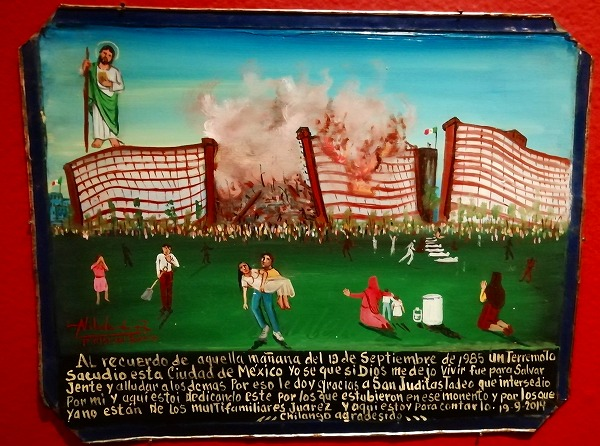 AL recuerdo de aquella mañana del 19 de Septiembre de 1985 un Terremoto
Sacudio esta Ciudad de México Yo se que si Dios me dejo Vivir fue para Salvar
Jente y alludar a los demas Por eso le doy gracias a San Juditas tadeo que intersedio
Por mi y aqui estoi dedicando este por los que estubieron en ese momento y por los que
ya no están de los multifamiliares Juarez y aqui estoy para contarlo. 19-9-2014
chilango agradesido